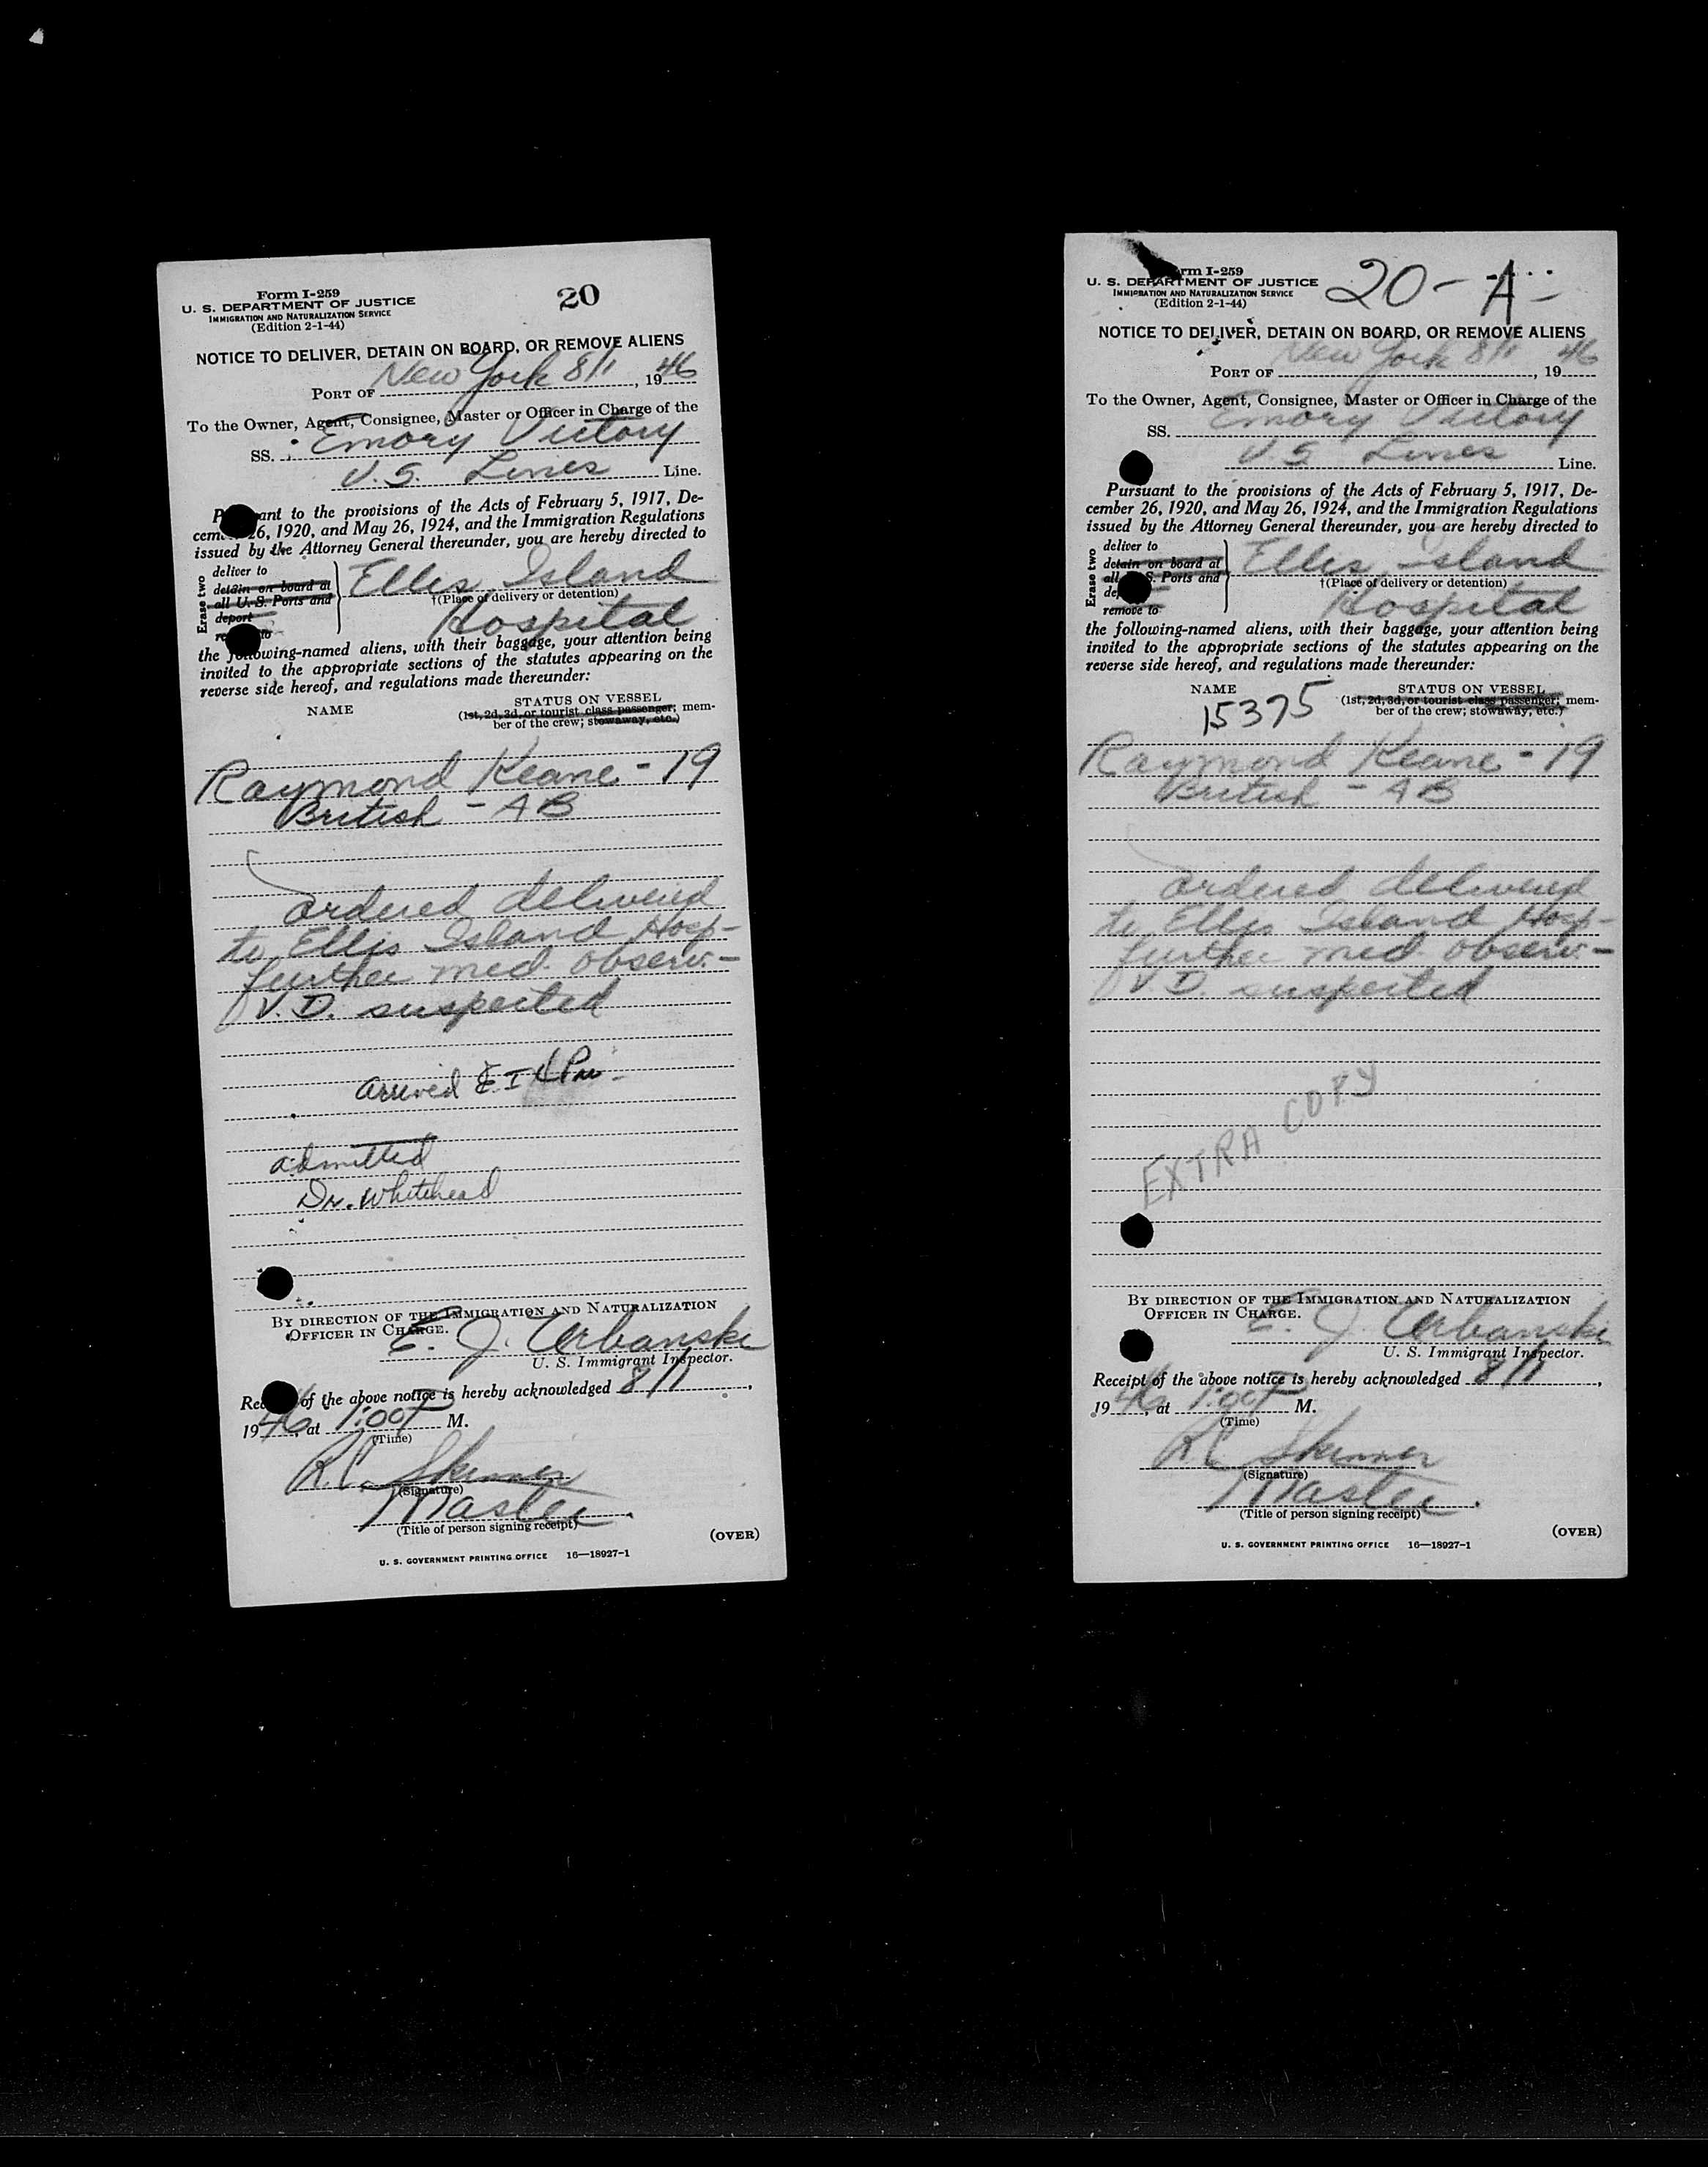 Form I-259
20
U. S. DEPARTMENT OF JUSTICE
IMMIGRATION AND NATURALIZATION SERVICE
(Edition 2-1-44)
NOTICE TO DELIVER, DETAIN ON BOARD, OR REMOVE ALIENS
PORT OF New York 8/1, 1946
To the Owner, Agent, Consignee, Master or Officer in Charge of the
SS. Emory Victory
U.S. Lines Line.
ant to the provisions of the Acts of February 5, 1917, De-
cem 26, 1920, and May 26, 1924, and the Immigration Regulations
issued by the Attorney General thereunder, you are hereby directed to
Erase two
deliver to
detain on board at
all U. S. Ports and
deport
Ellis Island
†(Place of delivery or detention)
Hospital
the following-named aliens, with their baggage, your attention being
invited to the appropriate sections of the statutes appearing on the
reverse side hereof, and regulations made thereunder:
NAME
STATUS ON VESSEL
(1st, 2d, 3d, or tourist class passenger; mem-
ber of the crew; stowaway, etc.)
Raymond Keane - 19
British - AB
ordered delivered
to Ellis Island Hosp-
further med. observ. -
V.D. suspected
arrived E I
admitted
Dr. Whitehead
BY DIRECTION OF THE IMMIGRATION AND NATURALIZATION
OFFICER IN CHARGE.
E. J. Urbanski
U. S. Immigrant Inspector.
of the above notice is hereby acknowledged 8/1,
1946, at 1:00 P M.
(Time)
Skinner
(Signature)
Master.
(Title of person signing receipt)
(OVER)
U. S. GOVERNMENT PRINTING OFFICE 16—18927-1
rm I-259
20-A-
U. S. DEPARTMENT OF JUSTICE
IMMIGRATION AND NATURALIZATION SERVICE
(Edition 2-1-44)
NOTICE TO DELIVER, DETAIN ON BOARD, OR REMOVE ALIENS
PORT OF New York 8/1, 1946
To the Owner, Agent, Consignee, Master or Officer in Charge of the
SS. Emory Victory
U.S Lines Line.
Pursuant to the provisions of the Acts of February 5, 1917, De-
cember 26, 1920, and May 26, 1924, and the Immigration Regulations
issued by the Attorney General thereunder, you are hereby directed to
Erase two
deliver to
detain on board at
all S. Ports and
remove to
Ellis Island
†(Place of delivery or detention)
Hospital
the following-named aliens, with their baggage, your attention being
invited to the appropriate sections of the statutes appearing on the
reverse side hereof, and regulations made thereunder:
NAME
15375
STATUS ON VESSEL
(1st, 2d, 3d, or tourist class passenger; mem-
ber of the crew; stowaway, etc.)
Raymond Keane - 19
British - AB
ordered delivered
to Ellis Island Hosp-
further med. observ. -
V.D. suspected
EXTRA COPY
BY DIRECTION OF THE IMMIGRATION AND NATURALIZATION
OFFICER IN CHARGE.
E. J. Urbanski
U. S. Immigrant Inspector.
Receipt of the above notice is hereby acknowledged 8/1,
1946, at 1:00 P M.
(Time)
Skinner
(Signature)
Master.
(Title of person signing receipt)
(OVER)
U. S. GOVERNMENT PRINTING OFFICE 16—18927-1